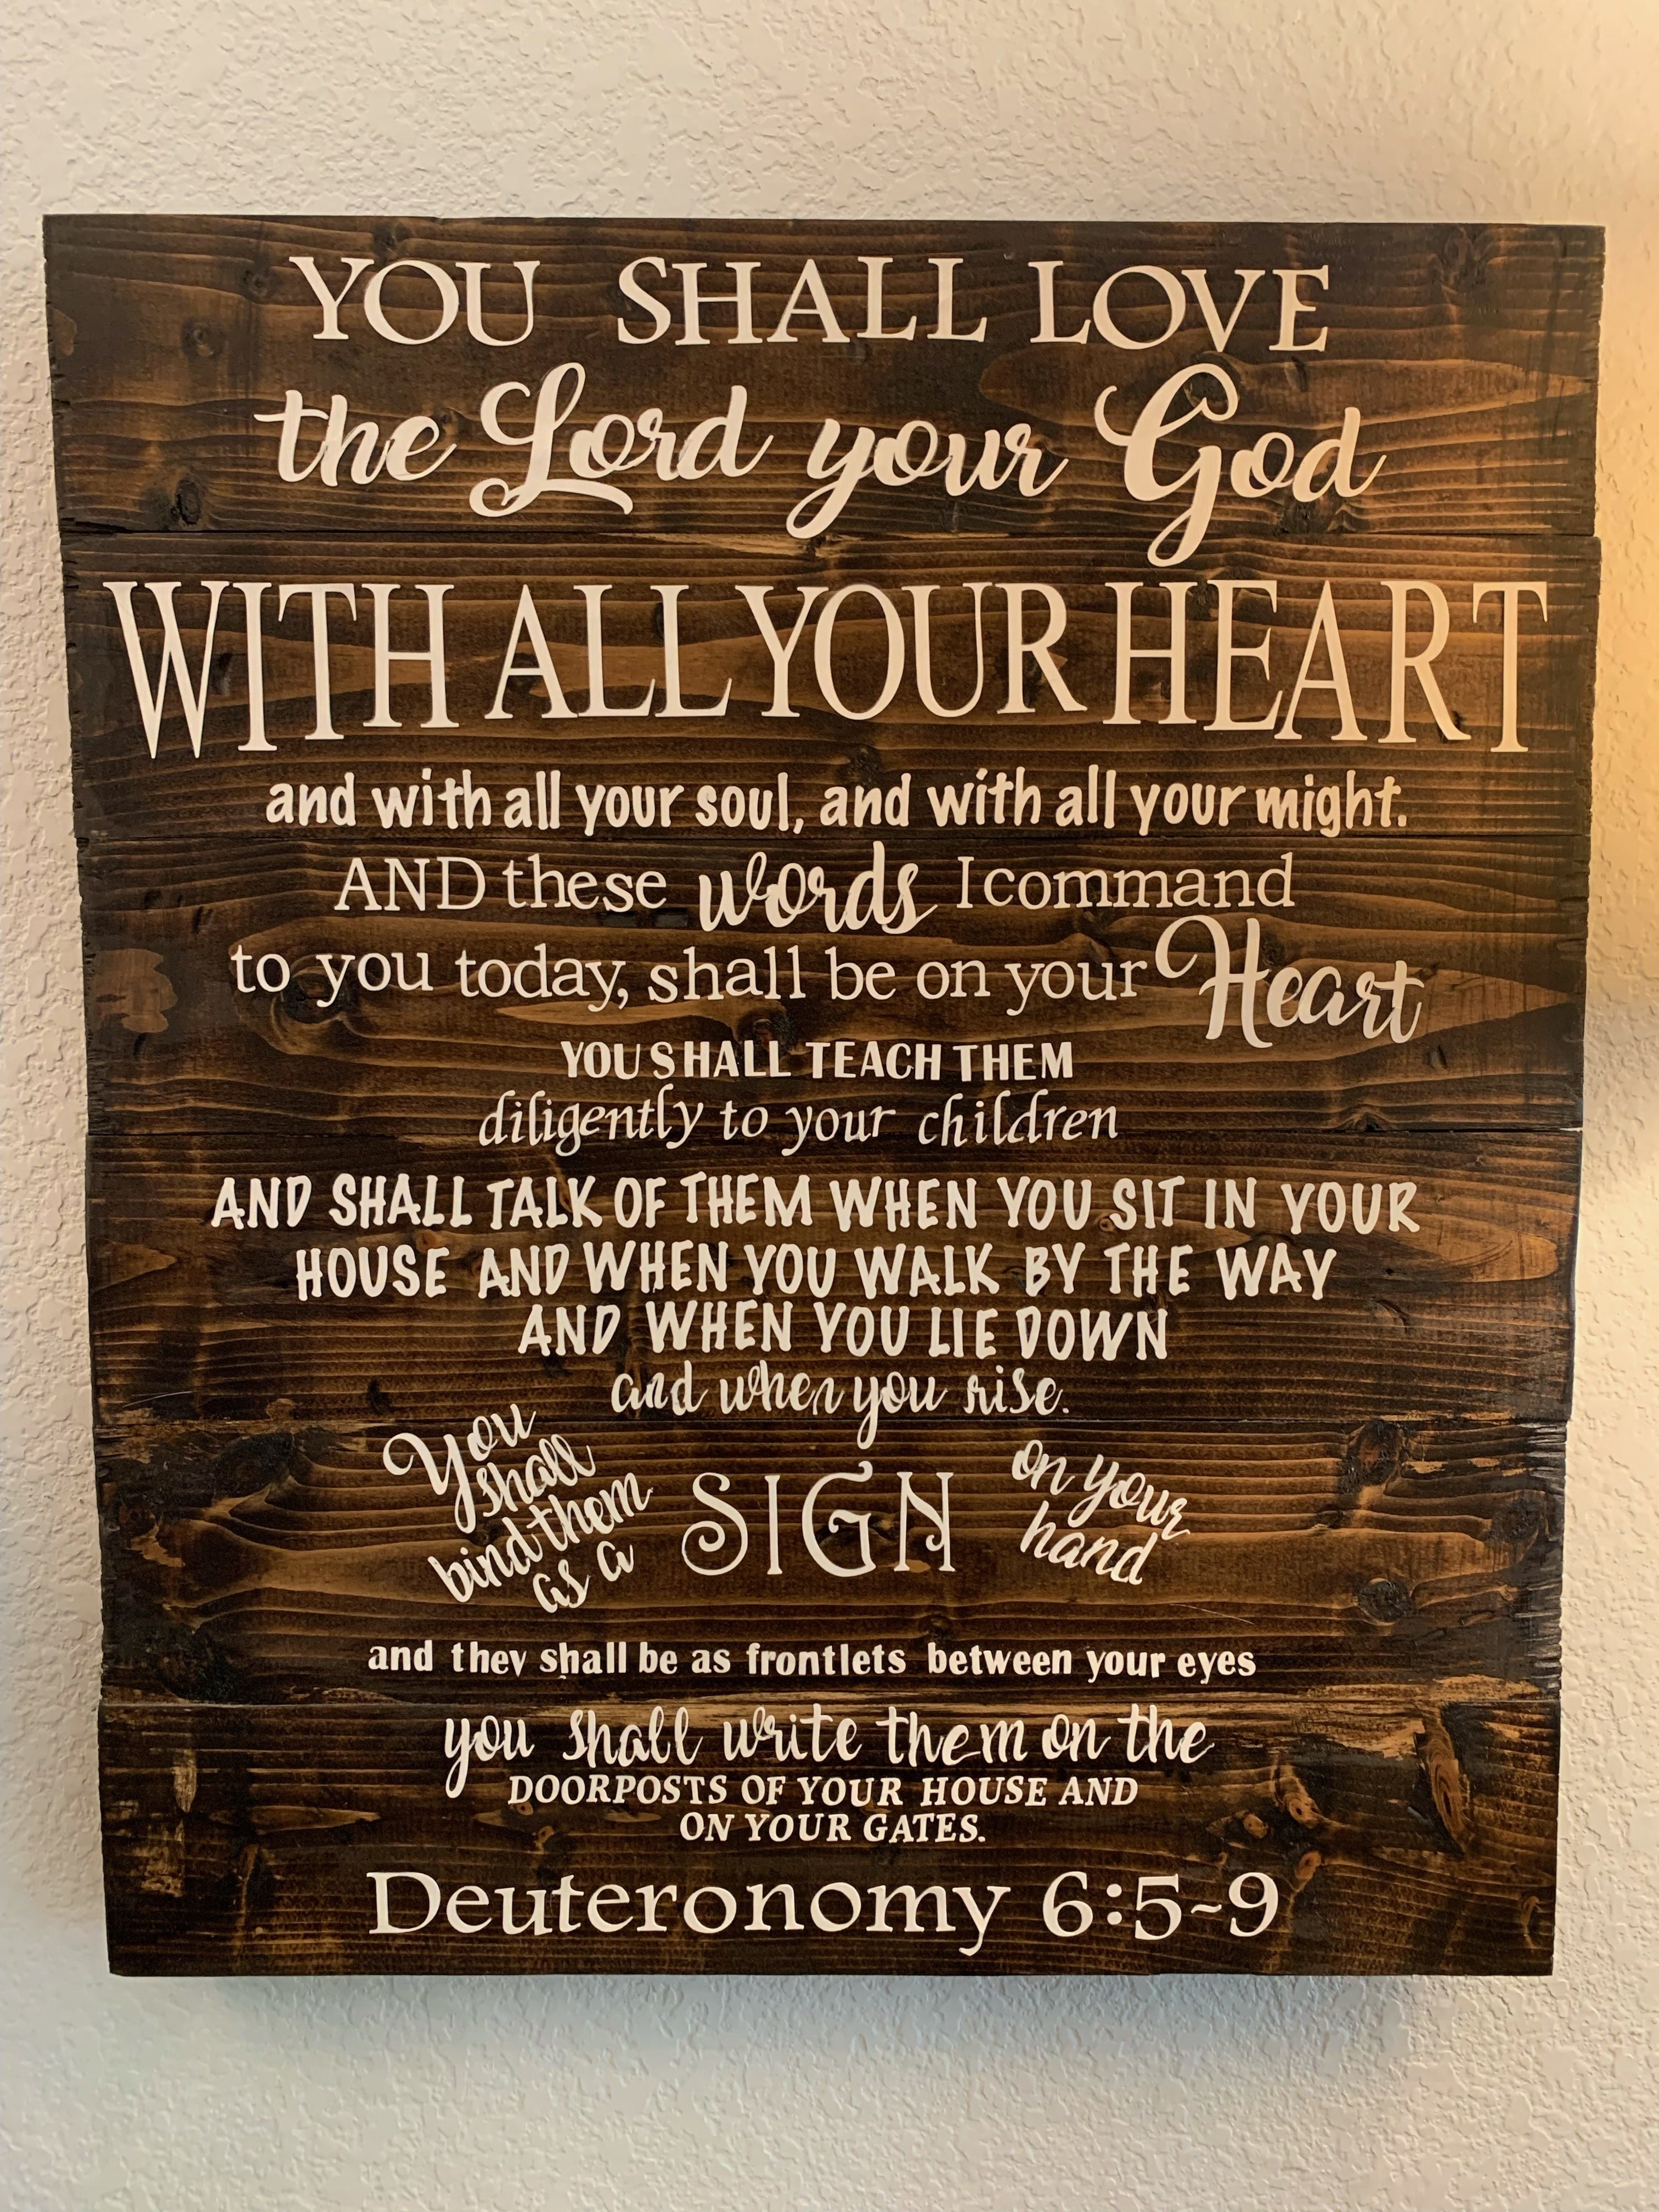 YOU SHALL LOVE
the Lord your God
WITH ALL YOUR HEART
and with all your soul, and with all your might.
AND these words I command
to you today, shall be on your Heart
YOU SHALL TEACH THEM
diligently to your children
AND SHALL TALK OF THEM WHEN YOU SIT IN YOUR
HOUSE AND WHEN YOU WALK BY THE WAY
AND WHEN YOU LIE DOWN
and when you rise.
You
shall
bind them
as a
SIGN
on your
hand
and they shall be as frontlets between your eyes
you shall write them on the
DOORPOSTS OF YOUR HOUSE AND
ON YOUR GATES.
Deuteronomy 6:5-9